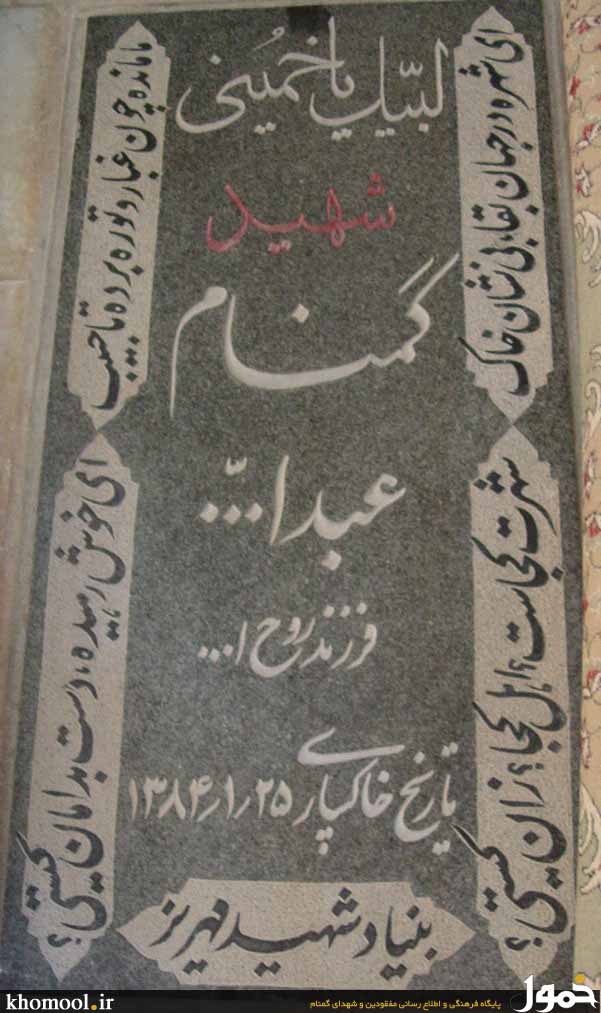 لبیک یا خمینی
شهید
گمنام
عبدا...
فرزند روح ا...
تاریخ خاکسپاری ۱۳۸۴٫۱٫۲۵
بنیاد شهید مهریز
ای شهره در جهان بقا، بی نشان خاک
شهرت کجاست؟ اهل کجا؟ زان کیستی؟
ما مانده چون غبار و تو ره برده تا حبیب
ای خوش رهیده، دست بدامان کیستی؟
khomool.ir
پایگاه فرهنگی و اطلاع رسانی مفقودین و شهدای گمنام
خمول